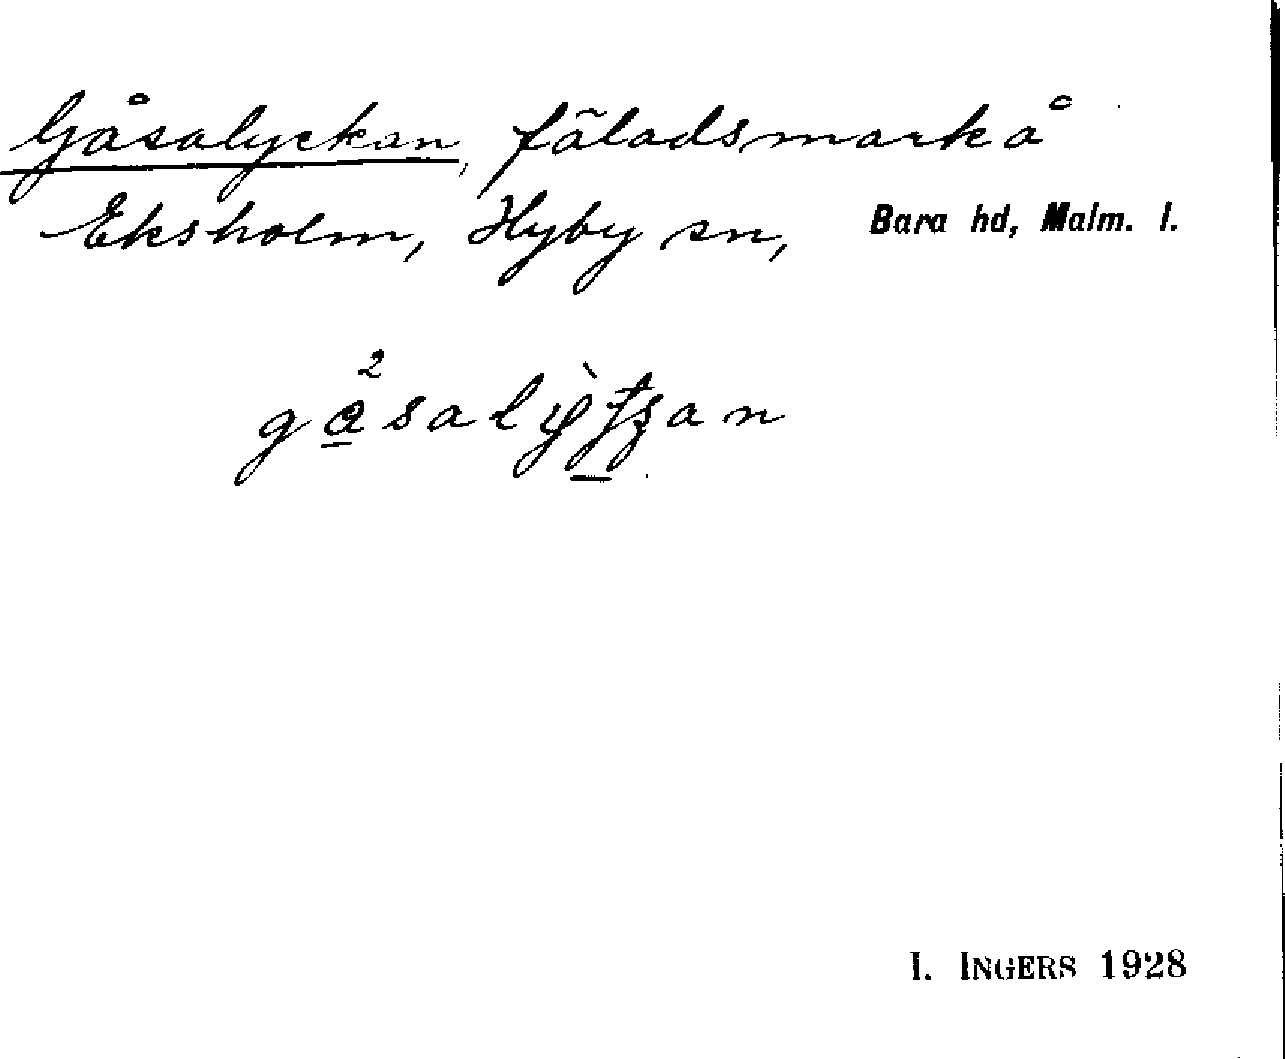 Gåsalyckan, fäladsmark å
Eksholm, Hyby sn, Bara hd, Malm. l.
I. INGERS 1928